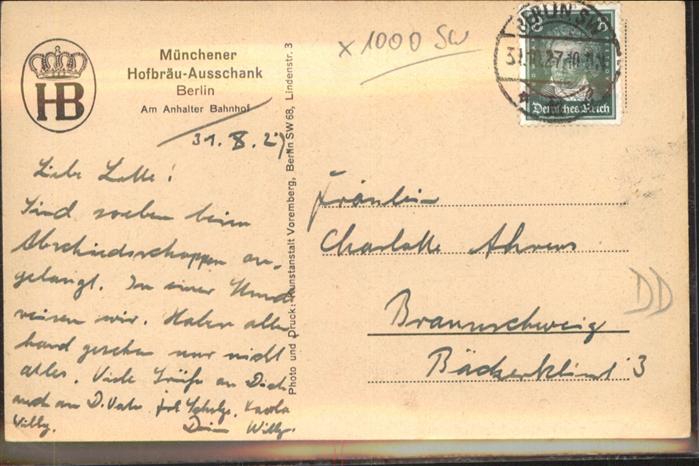 HB
Münchener
Hofbräu-Ausschank
Berlin
Am Anhalter Bahnhof
31.8.27
Liebe Lotte!
Sind soeben beim
Abschiedsschoppen an-
gelangt. In einer Stund
reisen wir. Haben aller-
hand gesehen nur nicht
alles. Viele Grüße an Dich
auch an D. Vater.
Willy. Dein Willy.
Photo und Druck: Kunstanstalt Voremberg, Berlin SW 68, Lindenstr. 3
x 1000 SW
BERLIN SW
Deutsches Reich
Fräulein
Charlotte Ahrens
Braunschweig
Bäckerklint 3
DD